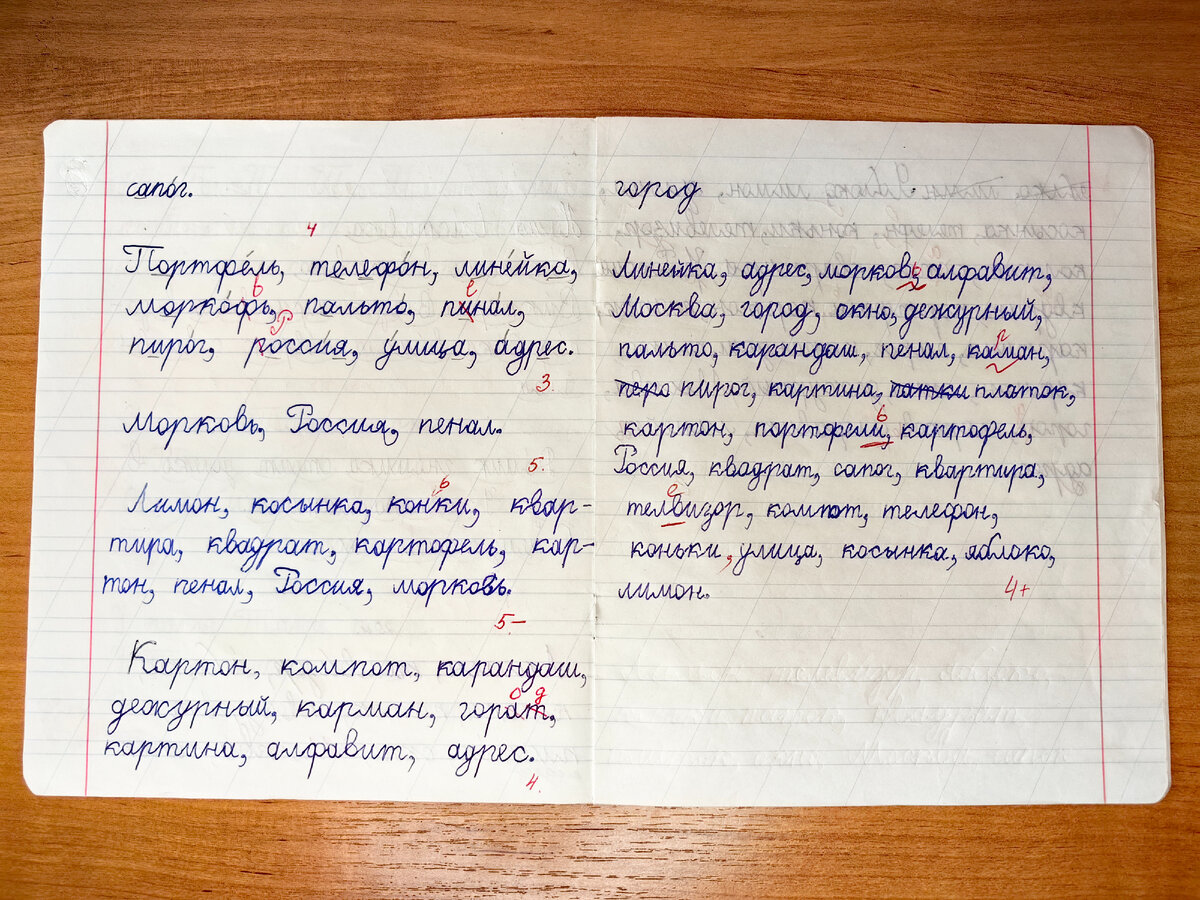 сапо́г.
4
Портфе́ль, телефо́н, лине́йка,
в е
морко́фь, пальто́, пина́л,
Р
пиро́г, росси́я, у́лица, а́дрес.
3.
Морковь, Россия, пенал.
5.
ь
Лимон, косынка, конки, квар-
тира, квадрат, картофель, кар-
тон, пенал, Россия, морковь.
5-
Картон, компот, карандаш,
о д
дежурный, карман, горат,
картина, алфавит, адрес.
4.
город
Линейка, адрес, морковь алфавит,
Москва, город, окно, дежурный,
р
пальто, карандаш, пенал, каман,
перо пирог, картина, патки платок,
в
картон, портофели, картофель,
Россия, квадрат, сапог, квартира,
е
телвизор, компот, телефон,
коньки, улица, косынка, яблоко,
лимон.
4+